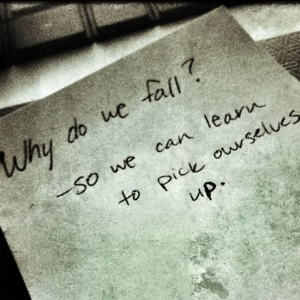 Why do we fall?
-so we can learn
to pick ourselves
up.